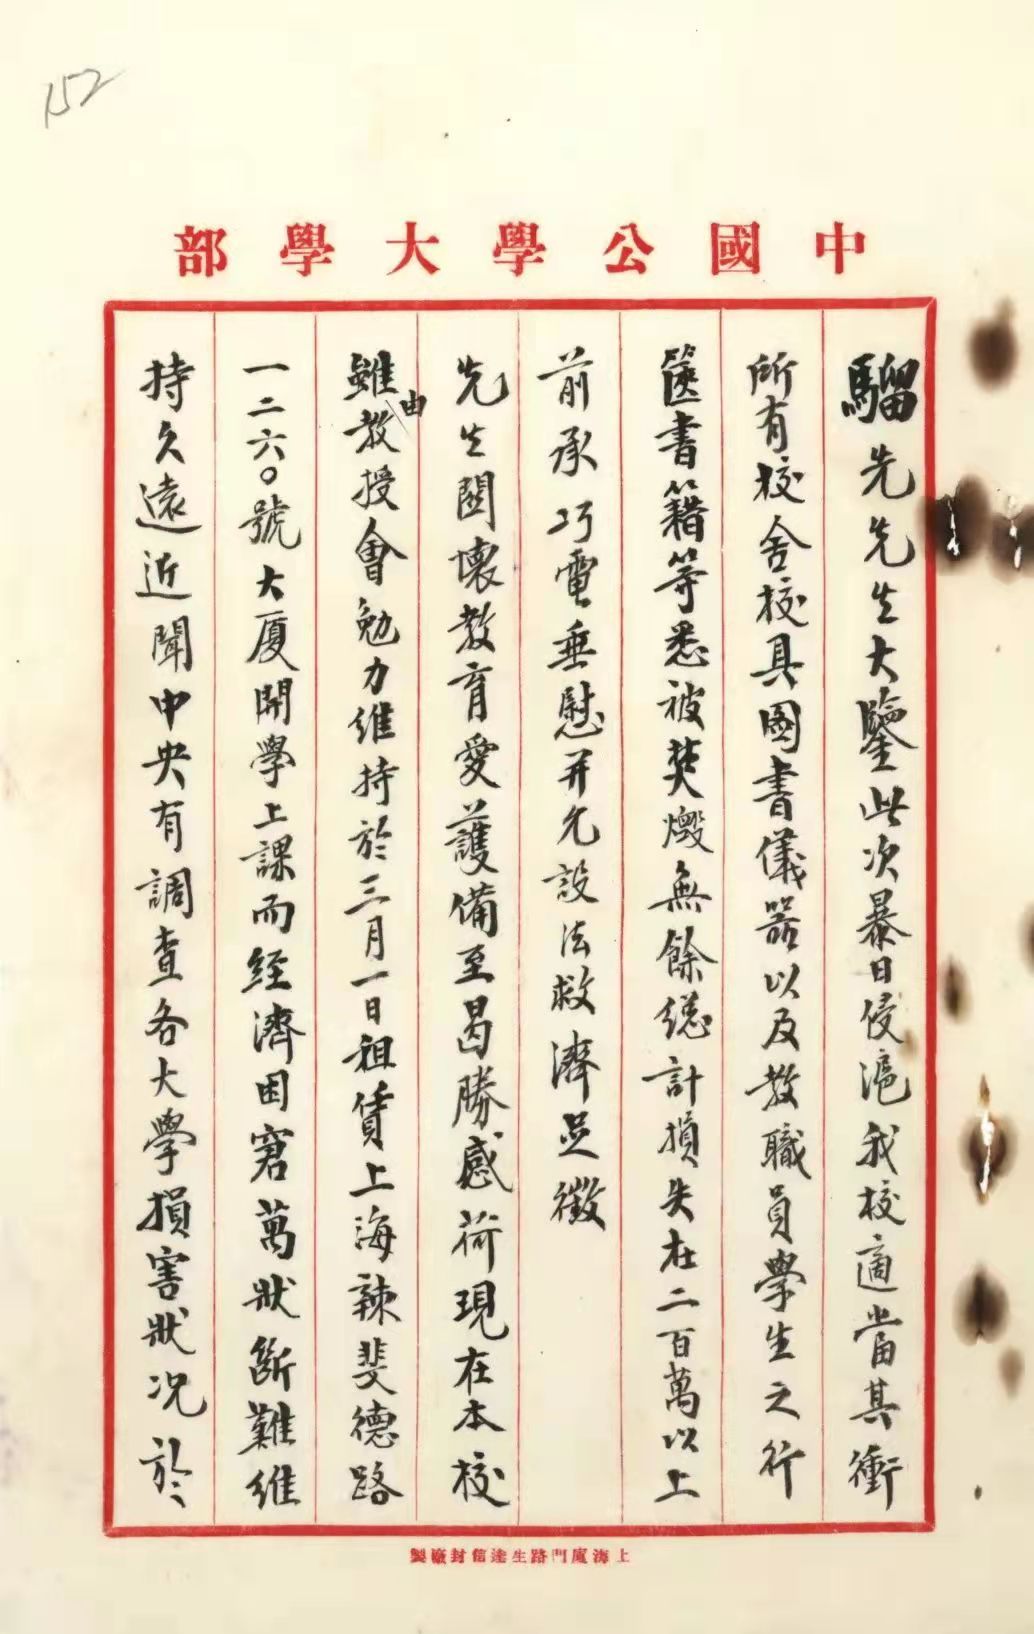 152
中國公學大學部
騮先先生大鑒此次暴日侵滬我校適當其衝
所有校舍校具圖書儀器以及教職員學生之行
篋書籍等悉被焚燬無餘總計損失在二百萬以上
前承巧電垂慰并允設法救濟足徵
先生關懷教育愛護備至曷勝感荷現在本校
雖由教授會勉力維持於三月一日租賃上海辣斐德路
一二六〇號大厦開學上課而經濟困窘萬狀斷難維
持久遠近聞中央有調查各大學損害狀况於
上海廈門路生達信封廠製